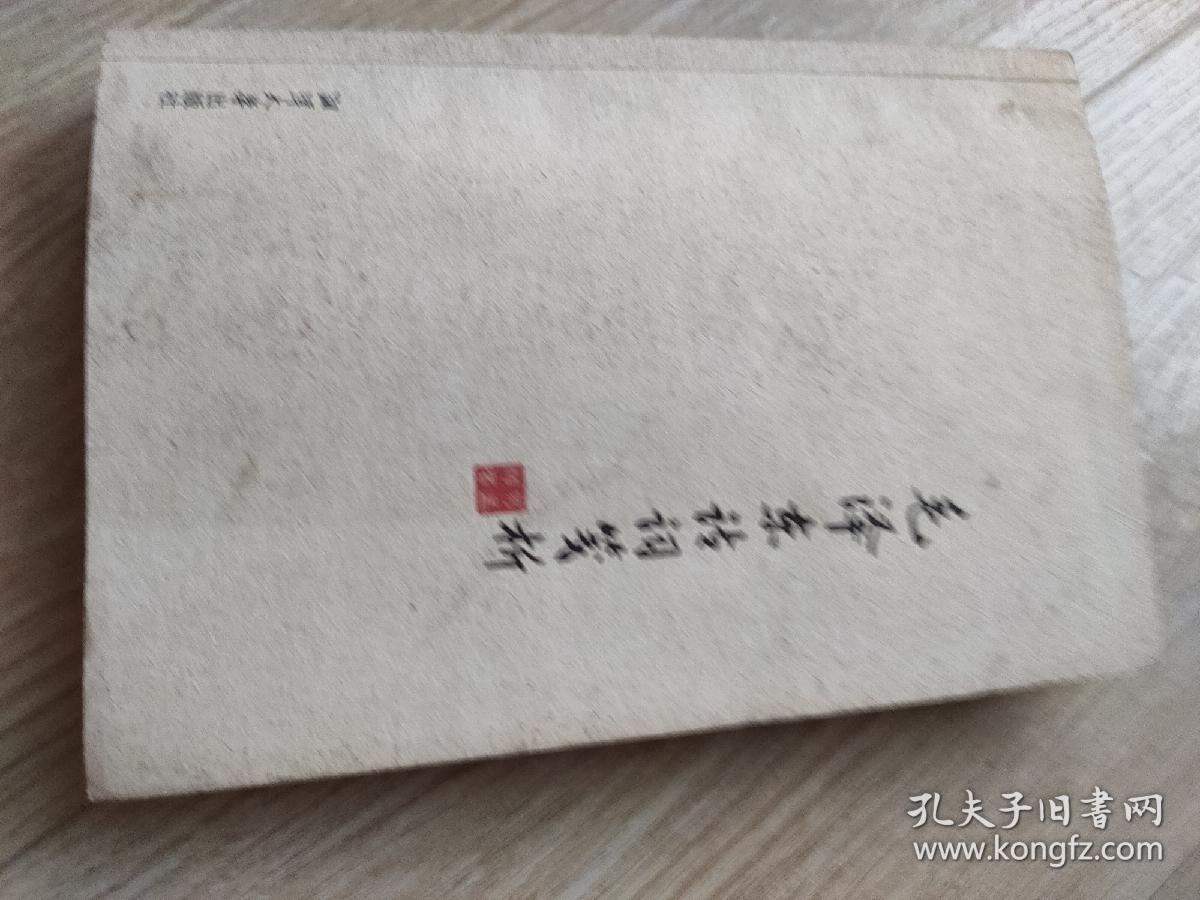 毛泽东诗词笺析
出版社
孔夫子旧書网
www.kongfz.com